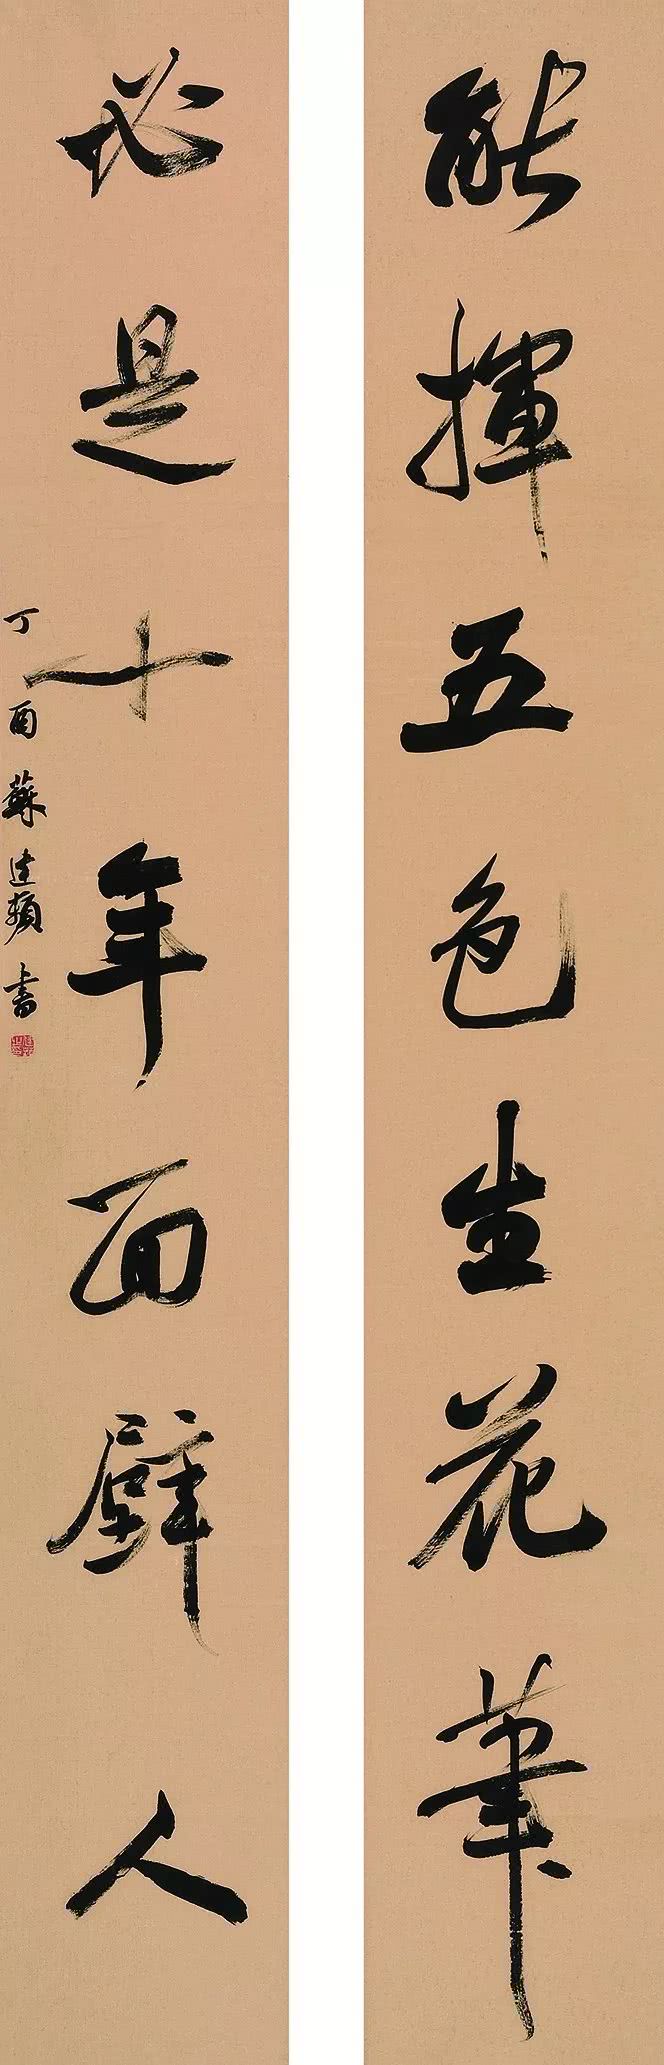 能揮五色生花筆
必是十年面壁人
丁酉蘇達頻書